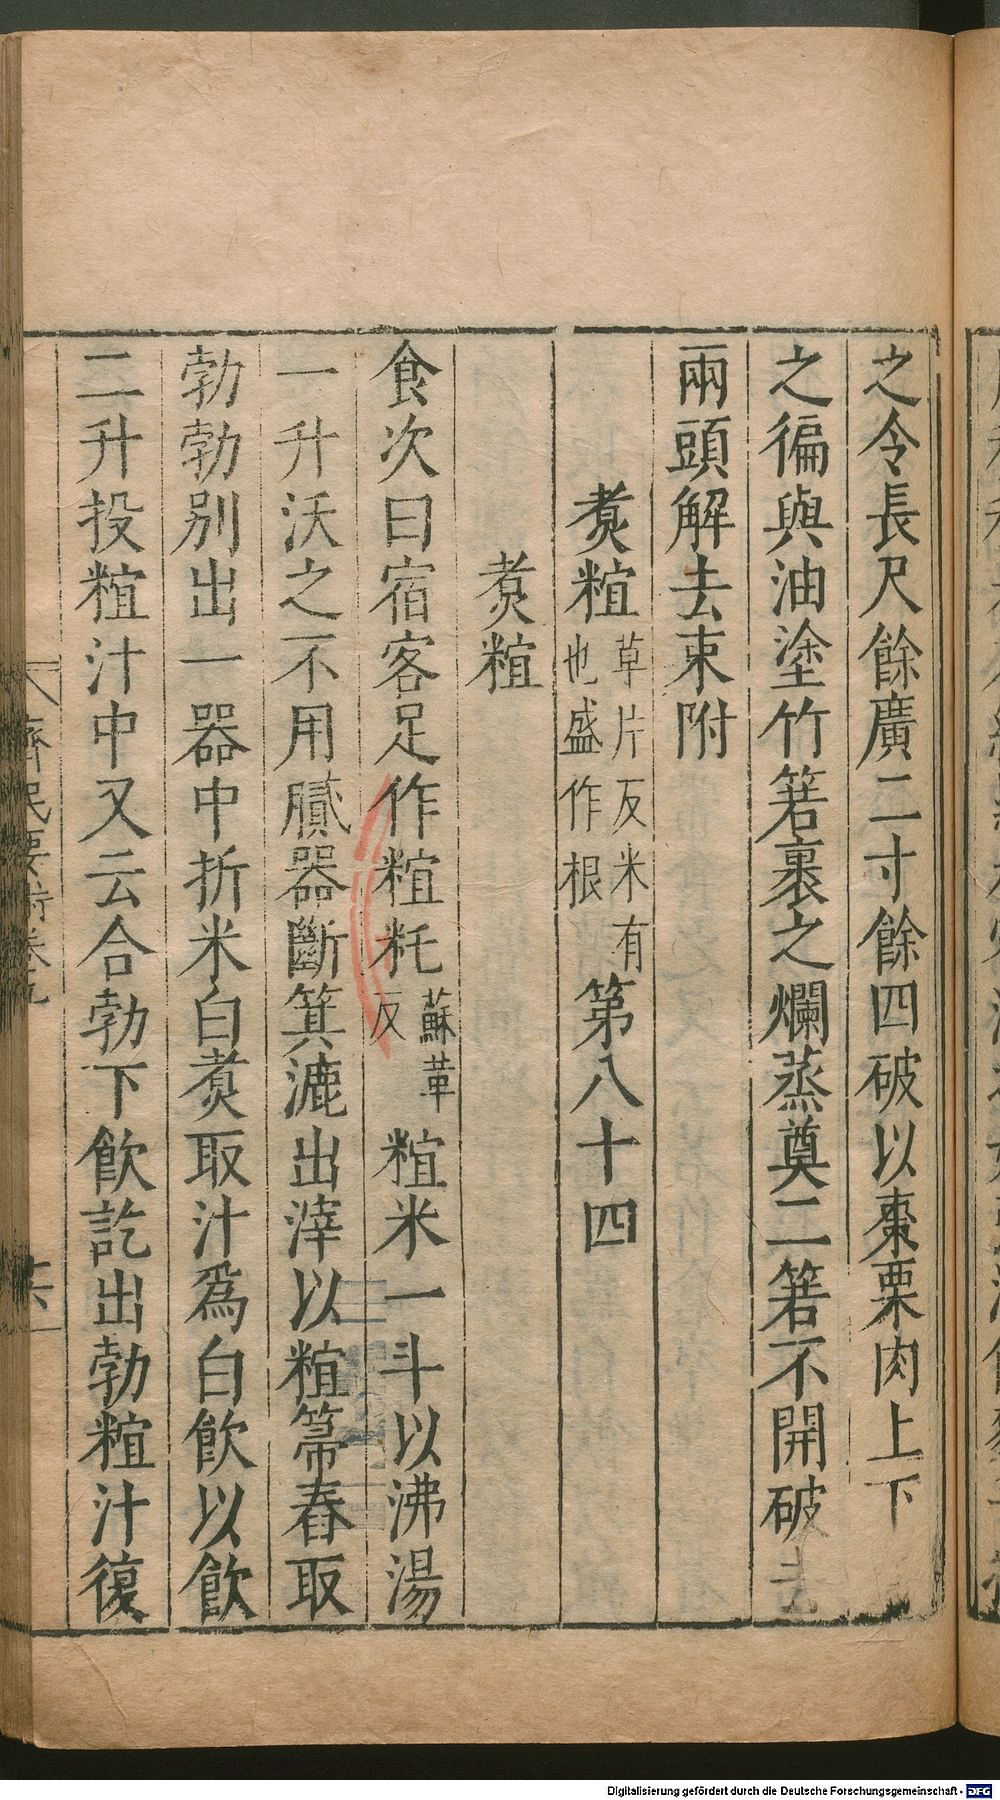 之令長尺餘廣二寸餘四破以棗栗肉上下
之徧與油塗竹箬裹之爛蒸奠二箬不開破去
兩頭解去束附
煑䊎草片反米有也盛作根第八十四
煑䊎
食次曰宿客足作䊎粍蘇革反䊎米一斗以沸湯
一升沃之不用膩器斷箕漉出滓以䊎箒舂取
勃勃別出一器中折米白煑取汁爲白飲以飲
二升投䊎汁中又云合勃下飲訖出勃䊎汁復
齊民要術卷九
Digitalisierung gefördert durch die Deutsche Forschungsgemeinschaft - DFG